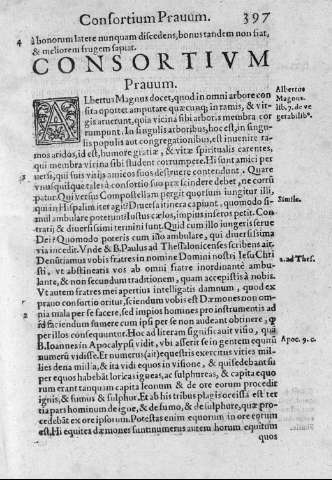 Consortium Prauum. 397
à bonorum latere nunquam discedens, bonus tandem non fiat,
& meliorem frugem sapiat.
CONSORTIVM
Prauum.
ALbertus Magnus docet, quod in omni arbore con
sita oportet amputare quæcunq; in ramis, & vir-
gis aruerunt, quia vicina sibi arboris membra cor
rumpunt. In singulis arboribus, hoc est, in singu-
lis populis aut congregationibus, est inuenire ra-
mos aridos, id est, humore gratiæ, & vitæ spiritualis carentes,
qui membra vicina sibi student corrumpere. Hi sunt amici per
uersi, qui suis vitijs amicos suos destruere contendunt. Quare
vnusquisque tales à consortio suo præscindere debet, ne corru
patur. Qui versus Compostellam pergit quorsum iungitur illi,
qui in Hispalim iter agit? Diuersa itinera capiunt, quomodo si-
mul ambulare potetunt? Iustus cælos, impius inferos petit. Con
trarij & diuersissimi termini sunt. Quid cum illo iungeris serue
Dei? Quomodo poteris cum isto ambulare, qui diuersissima
via incedit. Vnde & B. Paulus ad Thessalonicenses scribens ait.
Denūtiamus vobis fratres in nomine Domini nostri Iesu Chri
sti, vt abstineatis vos ab omni fratre inordinatè ambu-
lante, & non secundum traditionem, quam accepistis à nobis.
Vt autem fratres mei apertius intelligatis damnum, quod ex
prauo consortio oritur, sciendum vobis est Dæmones non om-
nia mala per se facere, sed impios homines pro instrumentis ad
id faciendum sumere cum ipsi per se non audeant obtinere,
per illos consequuntur. Hoc ad literam significauit visio, quā
B. Ioannes in Apocalypsi vidit, vbi asserit se in gentem equūū
numerū vidisse. Et numerus (ait) equestris exercitus vities mil-
lies dena millia, & ita vidi equos in visione, & qui sedebant su
per equos habebāt loricas igneas, & sulphureas, & capita equo
rum erant tanquam capita leonum & de ore eorum procedit
ignis, & fumus & sulphur. Et ab his tribus plagis occissa est ter
tia pars hominum de igne, & de fumo, & de sulphure, quæ pro-
cedebāt ex ore ipsorum. Potestas enim equorum in ore eorum
est. Hi equites dæmones sunt: numerus autem horum equitum
quos
4
Albertus
Magnus.
lib. 7. de ve
getabilib9.
Simile.
2. ad Thes.
Apoc. 9. c.